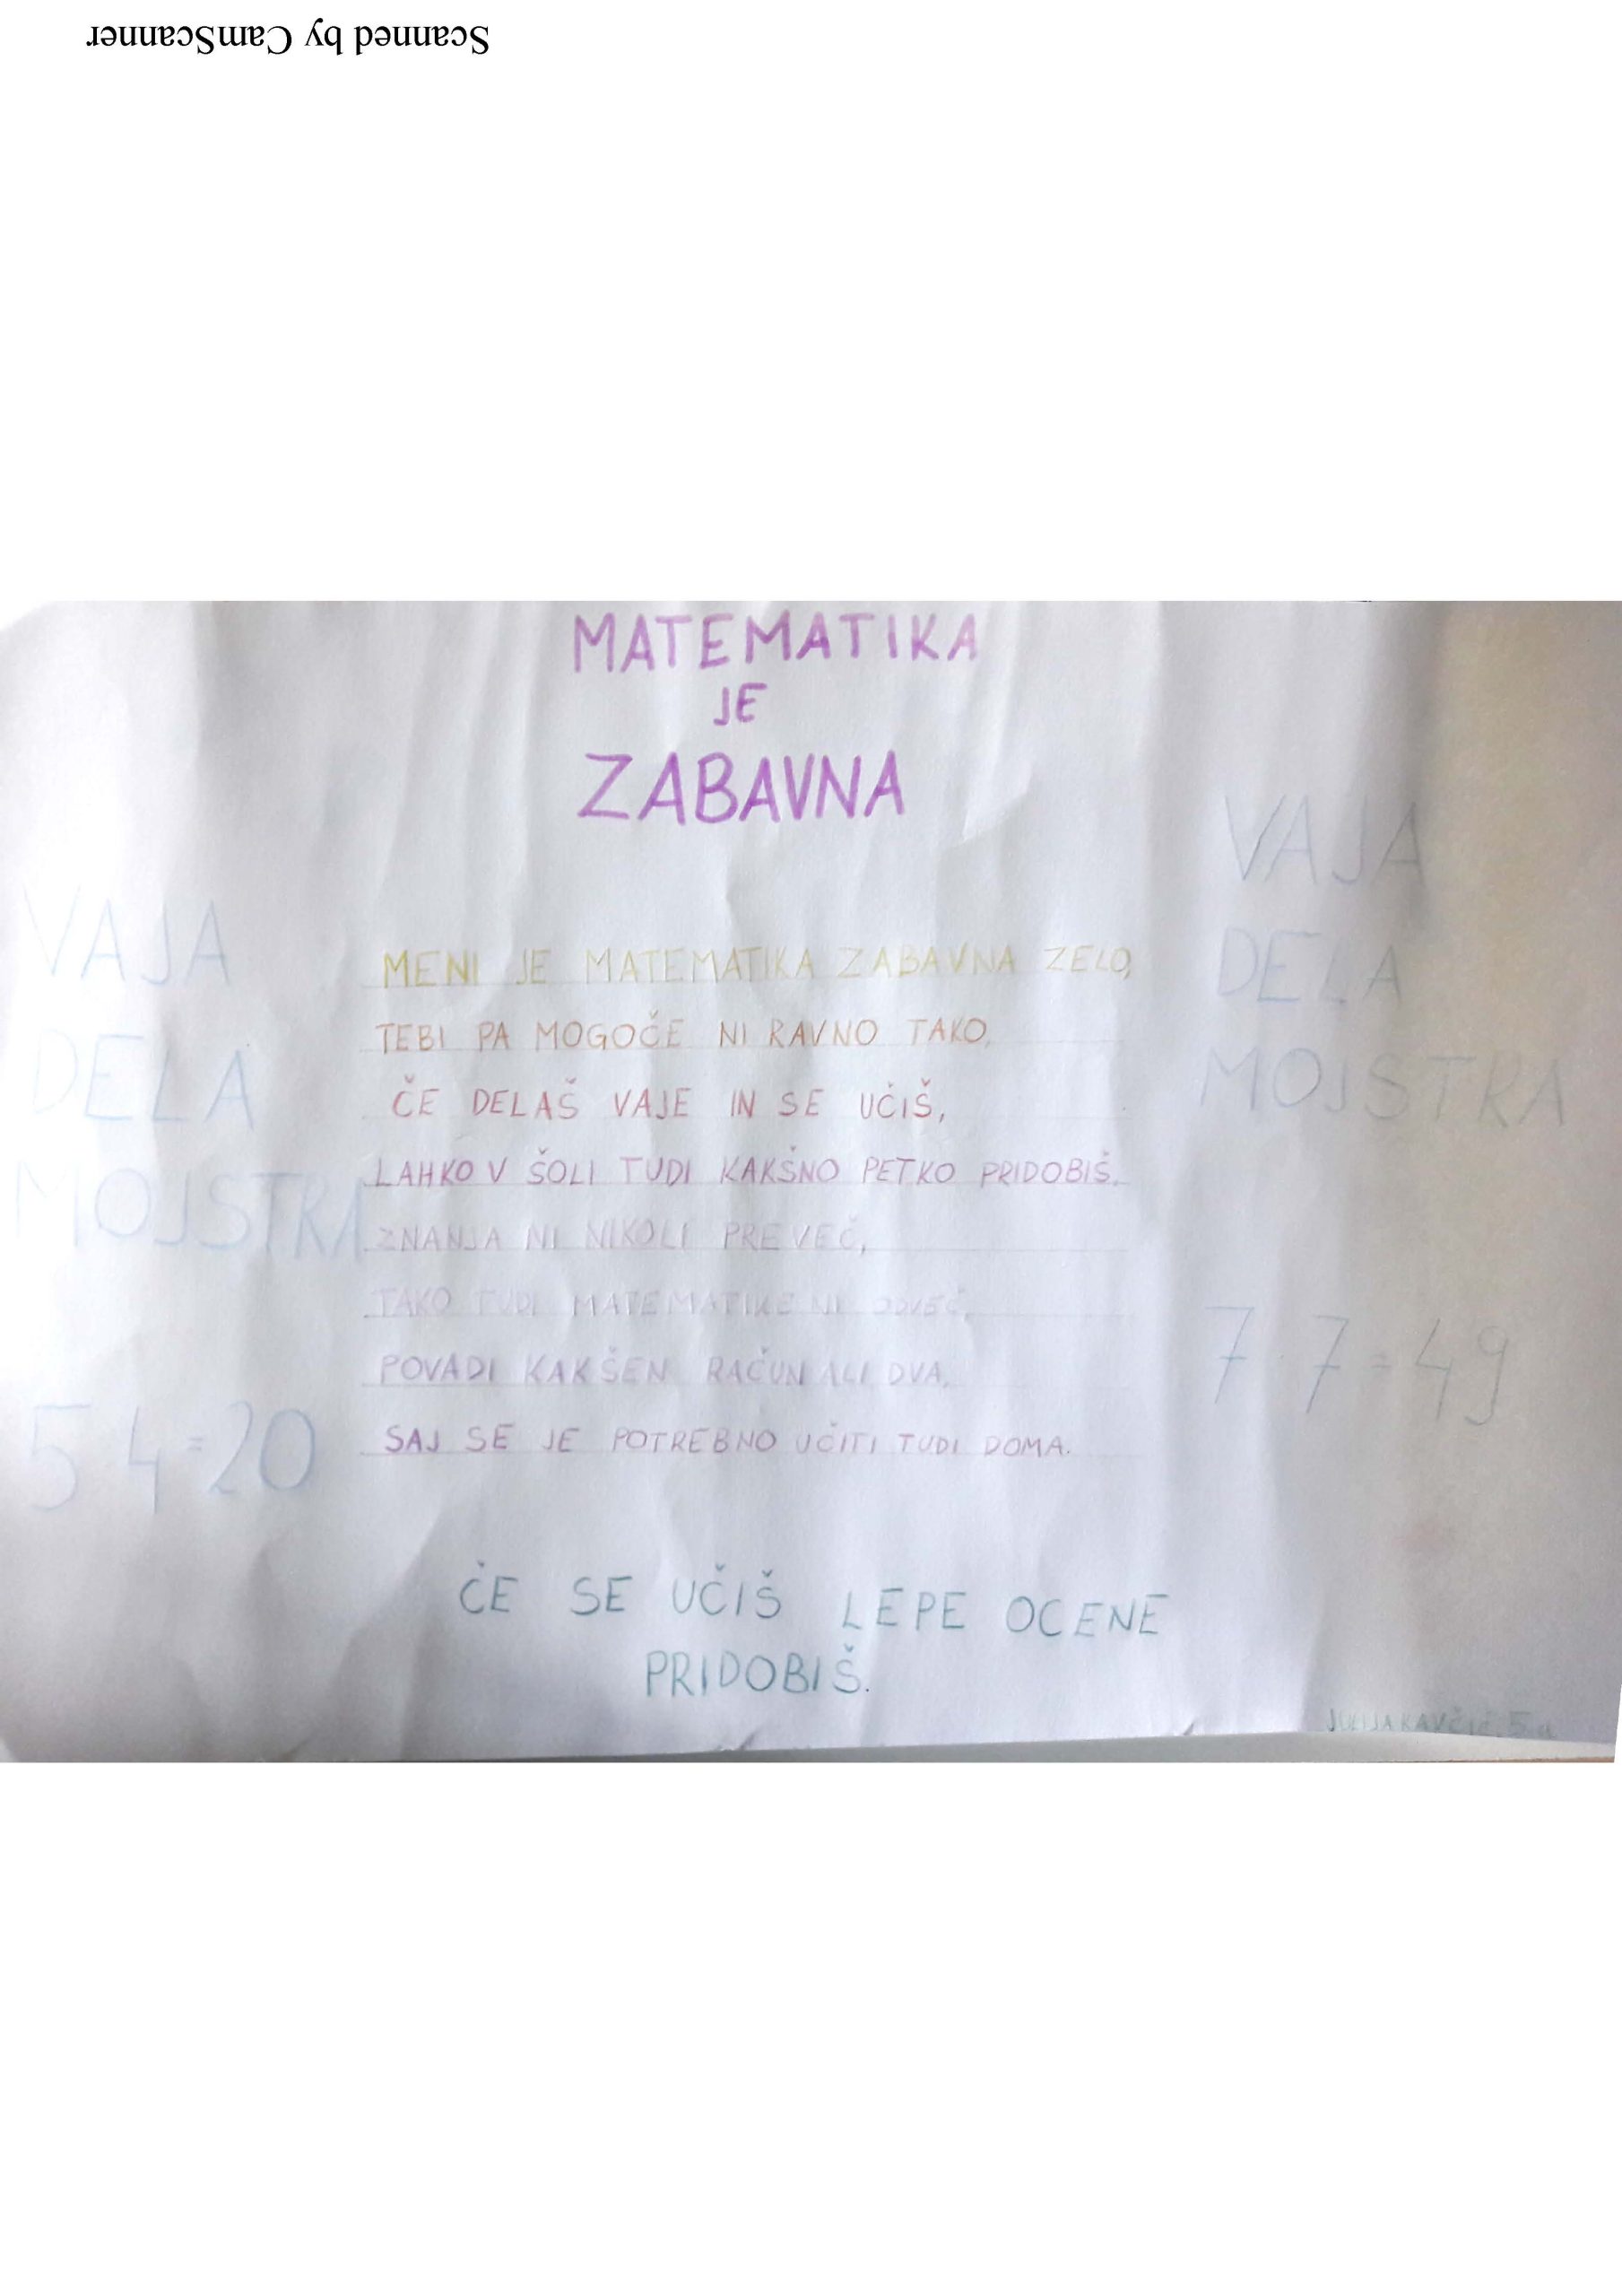 Scanned by CamScanner
MATEMATIKA
JE
ZABAVNA
VAJA
DELA
MOJSTRA
5 · 4 = 20
MENI JE MATEMATIKA ZABAVNA ZELO,
TEBI PA MOGOČE NI RAVNO TAKO,
ČE DELAŠ VAJE IN SE UČIŠ,
LAHKO V ŠOLI TUDI KAKŠNO PETKO PRIDOBIŠ.
ZNANJA NI NIKOLI PREVEČ,
TAKO TUDI MATEMATIKE NI ODVEČ.
POVADI KAKŠEN RAČUN ALI DVA,
SAJ SE JE POTREBNO UČITI TUDI DOMA.
VAJA
DELA
MOJSTRA
7 · 7 = 49
ČE SE UČIŠ LEPE OCENE
PRIDOBIŠ.
JULIJA KAVČIČ, 5.